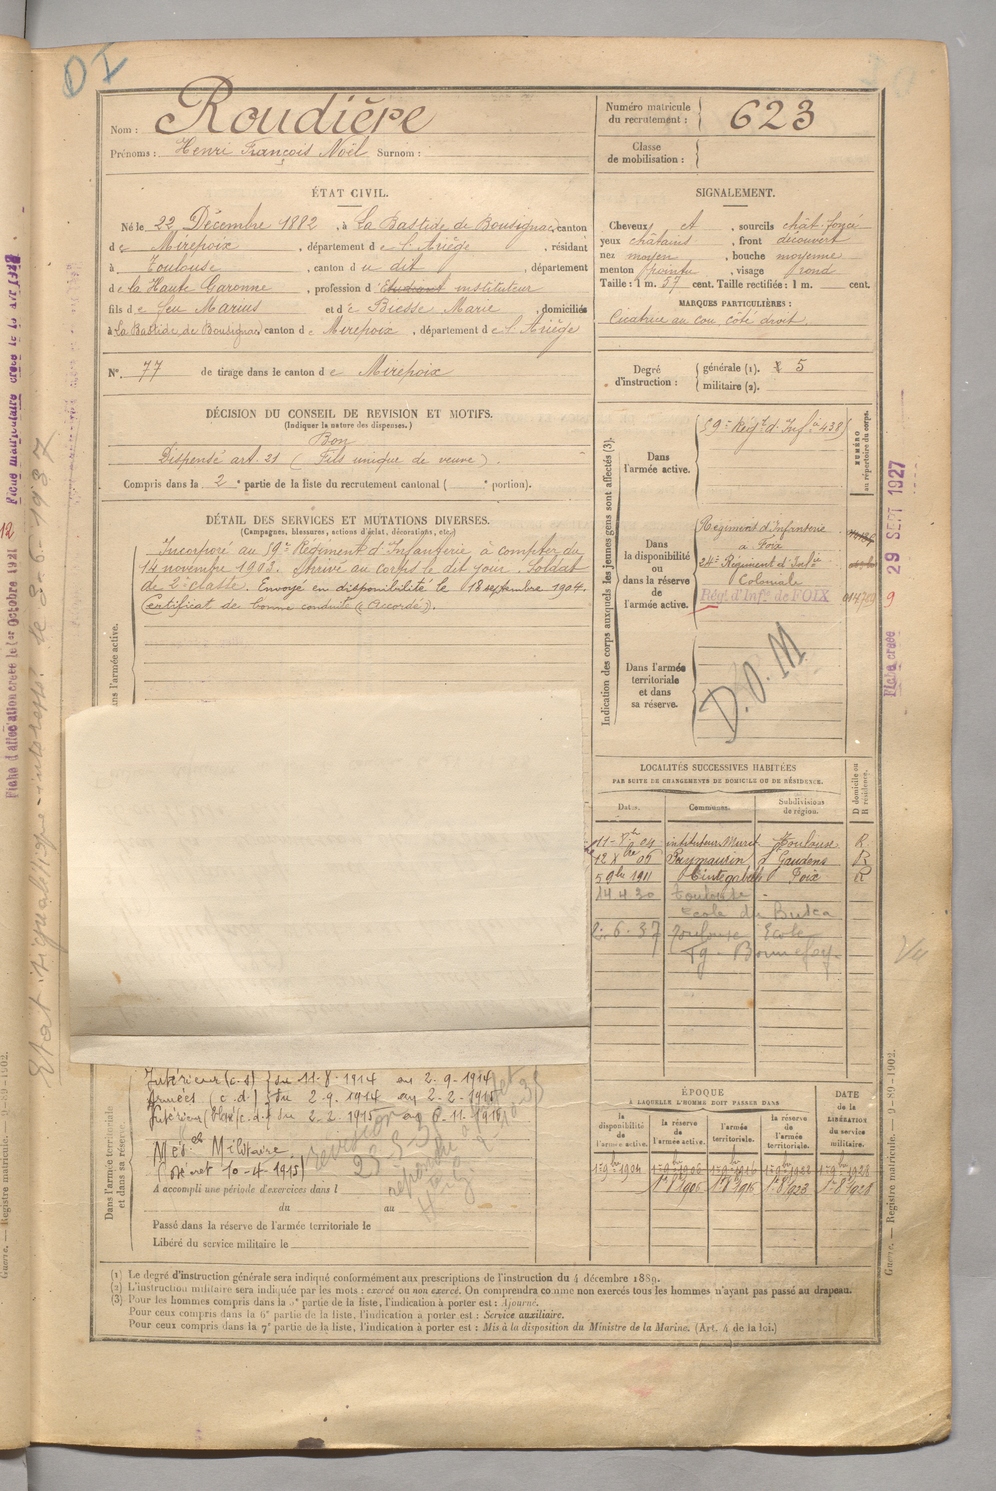 DI
Nom : Roudière
Prénoms : Henri François Noël Surnom :
Numéro matricule
du recrutement : 623
Classe
de mobilisation :
ÉTAT CIVIL.
Né le 22 Décembre 1882, à La Bastide de Bousignac, canton
de Mirepoix, département de l'Ariège, résidant
à Toulouse, canton du dit, département
de la Haute Garonne, profession d'étudiant instituteur
fils de feu Marius et de Biesse Marie, domiciliés
à La Bastide de Bousignac canton de Mirepoix, département de l'Ariège
N° 77 de tirage dans le canton de Mirepoix
SIGNALEMENT.
Cheveux et, sourcils chât. foncé
yeux châtains, front découvert
nez moyen, bouche moyenne
menton pointu, visage rond
Taille : 1 m. 57 cent. Taille rectifiée : 1 m. cent.
MARQUES PARTICULIÈRES :
Cicatrice au cou, côté droit
Degré
d'instruction :
générale (1). 5
militaire (2).
DÉCISION DU CONSEIL DE REVISION ET MOTIFS.
(Indiquer la nature des dispenses.)
Bon
Dispensé art. 21 (Fils unique de veuve).
Compris dans la 2e partie de la liste du recrutement cantonal ( e portion).
DÉTAIL DES SERVICES ET MUTATIONS DIVERSES.
(Campagnes, blessures, actions d'éclat, décorations, etc.)
Incorporé au 59e Régiment d'Infanterie à compter du
14 novembre 1903. Arrivé au corps le dit jour. Soldat
de 2e classe. Envoyé en disponibilité le 18 septembre 1904.
Certificat de bonne conduite "Accordé".
Dans l'armée active.
Indication des corps auxquels les jeunes gens sont affectés (3).
NUMÉRO
au répertoire du corps.
Dans
l'armée active.
59e Régt d'Infie 4385
Dans
la disponibilité
ou
dans la réserve
de
l'armée active.
Régiment d'Infanterie
à Foix
24e Régiment d'Infie
Coloniale
Régt d'Infie de FOIX
Dans l'armée
territoriale
et dans
sa réserve.
D.O.M
LOCALITÉS SUCCESSIVES HABITÉES
PAR SUITE DE CHANGEMENTS DE DOMICILE OU DE RÉSIDENCE.
Dates. Communes. Subdivisions
de région.
D domicile ou
R résidence.
11 - 8bre 04 instituteur Muret Toulouse R
12 Xbre 05 Puymaurin St Gaudens R
5 9bre 1911 Cintegabelle Foix R
14 4 30 Toulouse -
Ecole du Busca
2-6-37 Toulouse Ecole
Fg - Bonnefoy
Vu
Dans l'armée territoriale
et dans sa réserve.
Intérieur (c.s) du 11-8-1914 au 2-9-1914
Armées (c.d) du 2-9-1914 au 2-2-1915
Intérieur (blessé c.d) du 2-2-1915
Médlle Militaire
(Décret 10-4-1915)
revision
A accompli une période d'exercices dans l
du au
Passé dans la réserve de l'armée territoriale le
Libéré du service militaire le
ÉPOQUE
À LAQUELLE L'HOMME DOIT PASSER DANS
DATE
de la
LIBÉRATION
du service
militaire.
la
disponibilité
de
l'armée active.
la réserve
de
l'armée active.
l'armée
territoriale.
la réserve
de
l'armée
territoriale.
1er 9bre 1904 1er 9bre 1906 1er 9bre 1916
1er 8bre 1906 1er 8bre 1916 1er 8bre 1923 1er 8bre 1928
(1) Le degré d'instruction générale sera indiqué conformément aux prescriptions de l'instruction du 4 décembre 1889.
(2) L'instruction militaire sera indiquée par les mots : exercé ou non exercé. On comprendra comme non exercés tous les hommes n'ayant pas passé au drapeau.
(3) Pour les hommes compris dans la 5e partie de la liste, l'indication à porter est : Ajourné.
Pour ceux compris dans la 6e partie de la liste, l'indication à porter est : Service auxiliaire.
Pour ceux compris dans la 7e partie de la liste, l'indication à porter est : Mis à la disposition du Ministre de la Marine. (Art. 4 de la loi.)
Fiche créée 29 SEPT 1927
9
Guerre. — Registre matricule. — 9-89-1902.
Fiche d'affectation créée le 1er Octobre 1921
Fiche matriculaire créée le
12